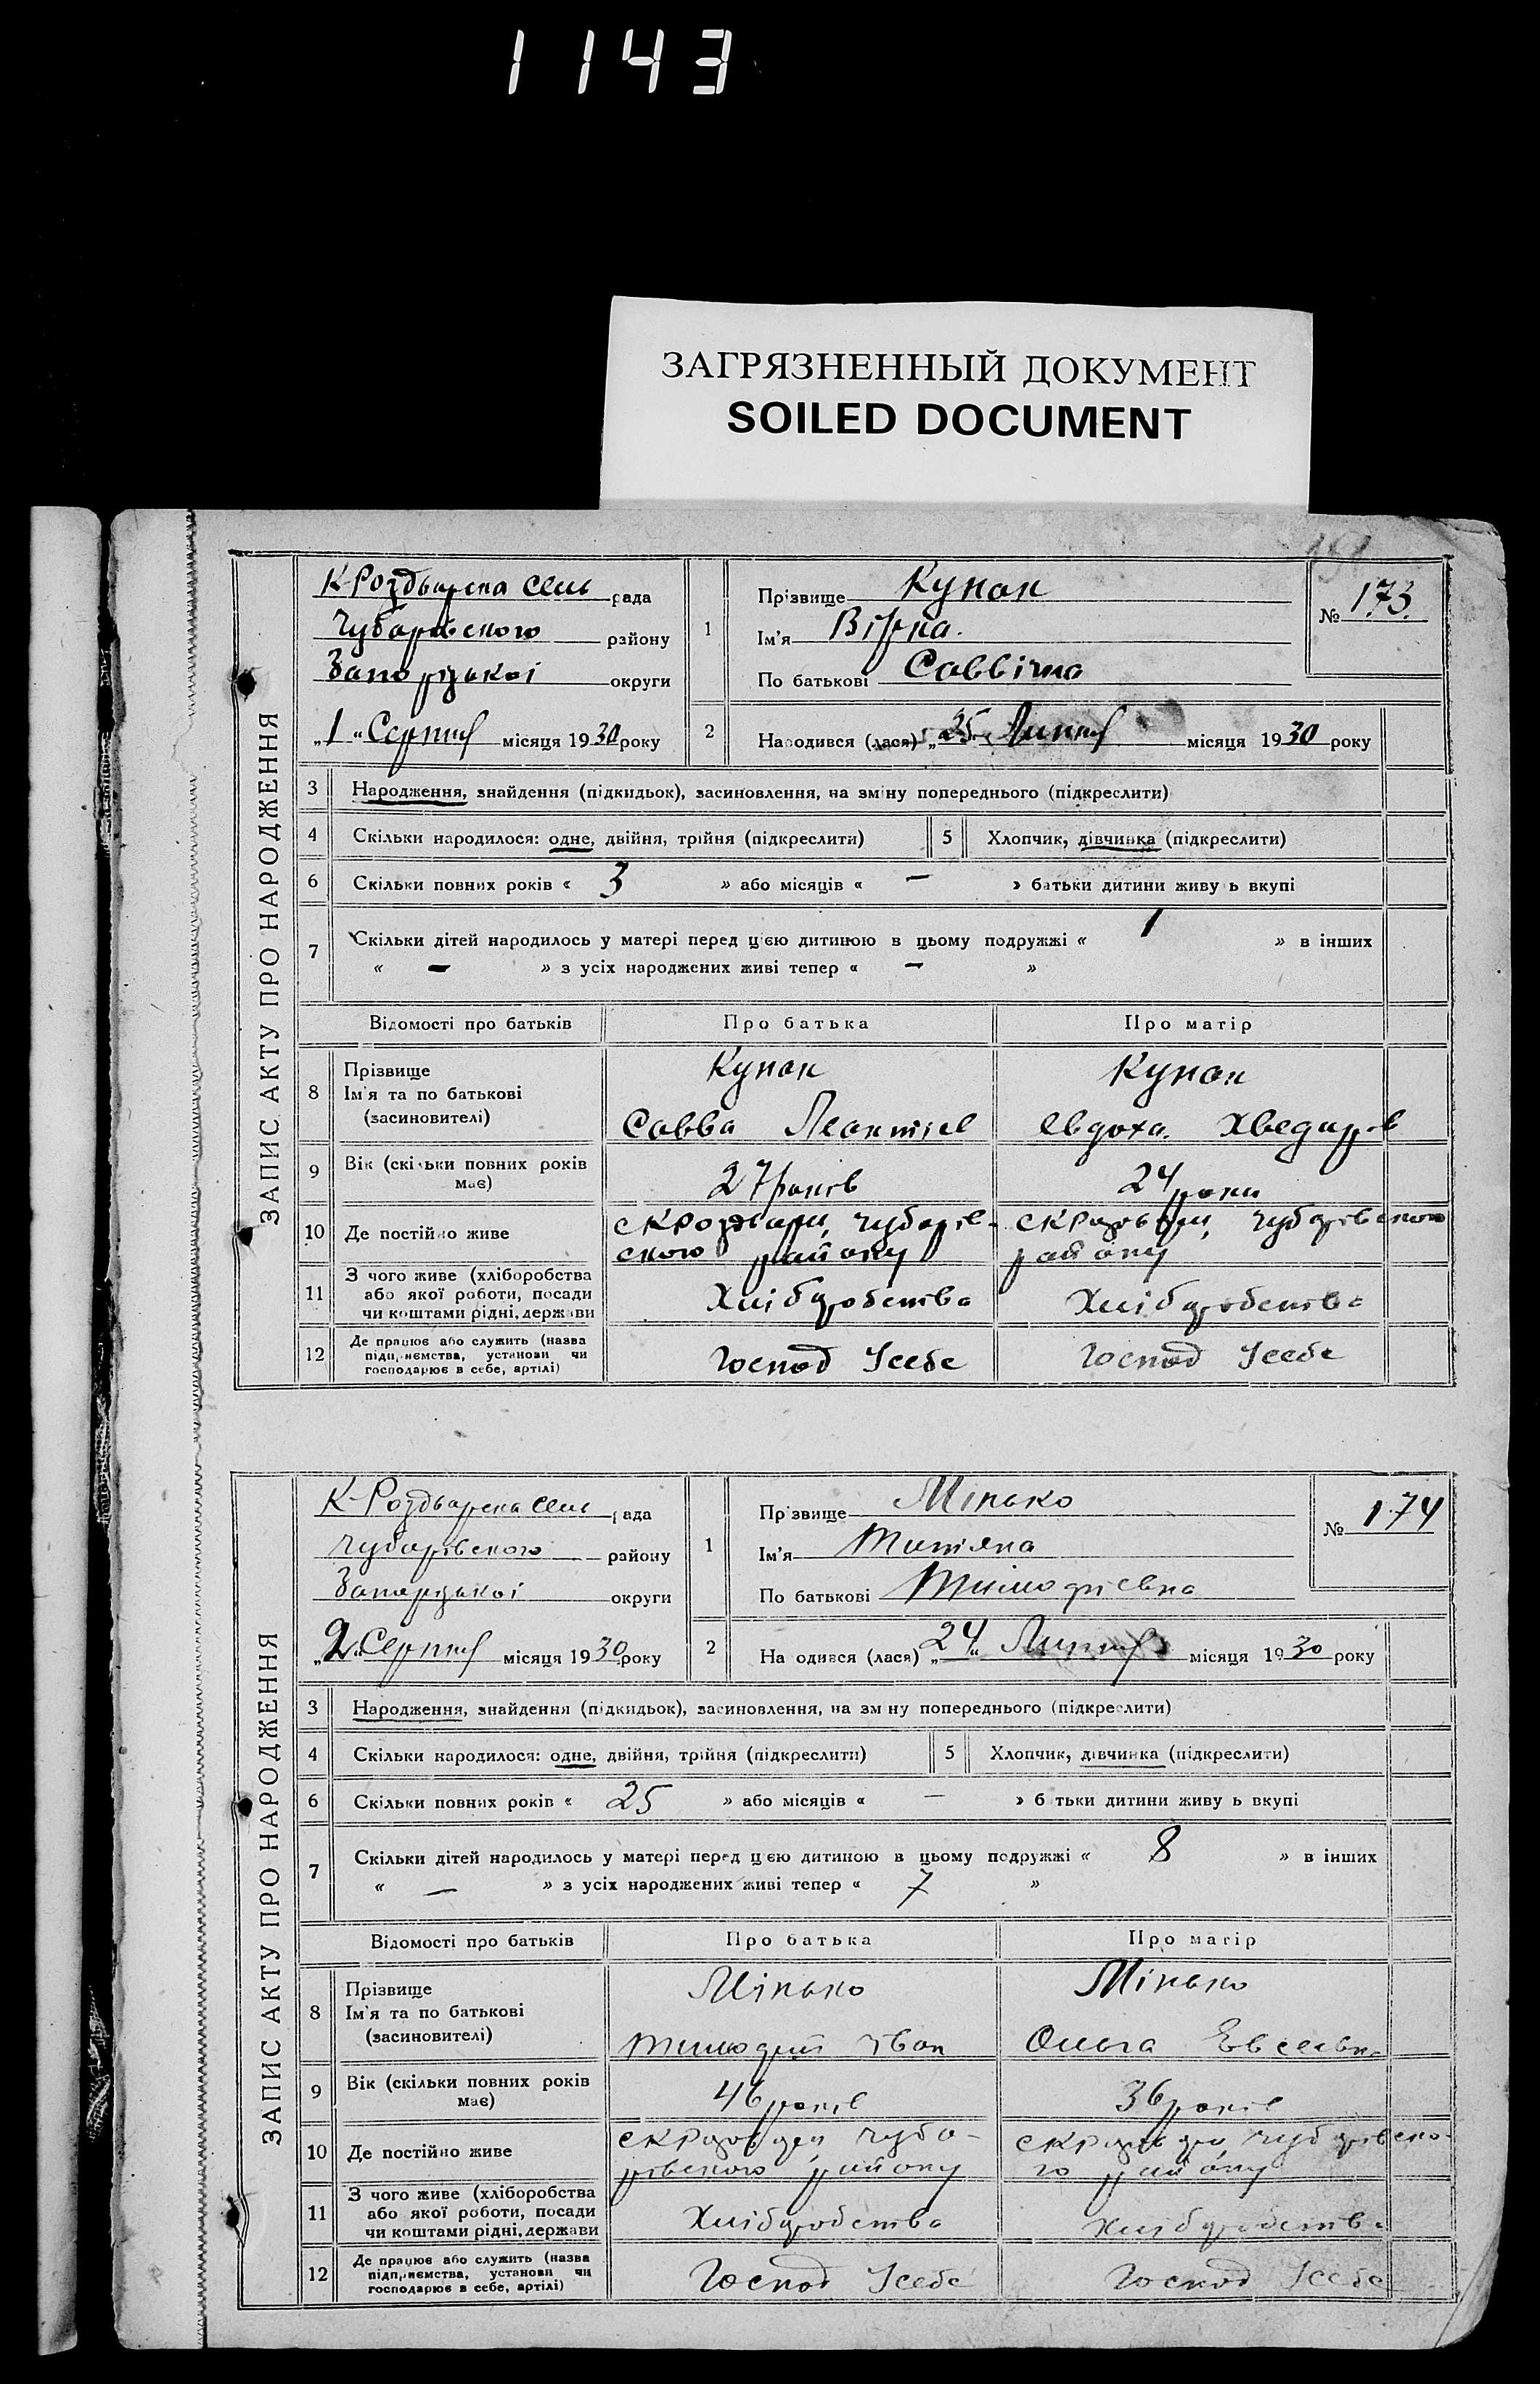 1143
ЗАГРЯЗНЕННЫЙ ДОКУМЕНТ
SOILED DOCUMENT
ЗАПИС АКТУ ПРО НАРОДЖЕННЯ
К-Роздварська сель рада
Чубарівського району
Запорізької округи
„1“ Серпня місяця 1930 року
1
Прізвище Купан
Ім'я Вірка.
По батькові Саввічна
№ 173.
2
Народився (лася) „25“ Липня місяця 1930 року
3 Народження, знайдення (підкидьок), засиновлення, на зміну попереднього (підкреслити)
4 Скільки народилося: одне, двійня, трійня (підкреслити) 5 Хлопчик, дівчинка (підкреслити)
6 Скільки повних років « 3 » або місяців « — » батьки дитини живуть вкупі
7 Скільки дітей народилось у матері перед цією дитиною в цьому подружжі « 1 » в інших
« — » з усіх народжених живі тепер « — »
Відомості про батьків Про батька Про матір
8 Прізвище
Ім'я та по батькові
(засиновителі)
Купан Купан
Савва Леонтіев Евдоха. Хведоров
9 Вік (скільки повних років має) 27 років 24 роки
10 Де постійно живе
Чубарів-ського району Чубарівського району
11 З чого живе (хліборобства
або якої роботи, посади
чи коштами рідні, держави
Хліборобства Хліборобства
12 Де працює або служить (назва
підприємства, установи чи
господарює в себе, артілі)
Господ Усебе Господ Усебе
ЗАПИС АКТУ ПРО НАРОДЖЕННЯ
К-Роздварська сель рада
Чубарівського району
Запорізької округи
„2“ Серпня місяця 1930 року
1
Прізвище Мінько
Ім'я Титяна
По батькові Тимофіевна
№ 174
2
Народився (лася) „24“ Липня місяця 1930 року
3 Народження, знайдення (підкидьок), засиновлення, на зміну попереднього (підкреслити)
4 Скільки народилося: одне, двійня, трійня (підкреслити) 5 Хлопчик, дівчинка (підкреслити)
6 Скільки повних років « 25 » або місяців « — » батьки дитини живуть вкупі
7 Скільки дітей народилось у матері перед цією дитиною в цьому подружжі « 8 » в інших
« — » з усіх народжених живі тепер « 7 »
Відомості про батьків Про батька Про матір
8 Прізвище
Ім'я та по батькові
(засиновителі)
Мінько Мінько
Тимофій Іван Ольга Евсеевна
9 Вік (скільки повних років має) 46 років 36 років
10 Де постійно живе
Чуба-рівського району Чубарівсько-го району
11 З чого живе (хліборобства
або якої роботи, посади
чи коштами рідні, держави
Хліборобства Хліборобства
12 Де працює або служить (назва
підприємства, установи чи
господарює в себе, артілі)
Господ Усебе Господ Усебе